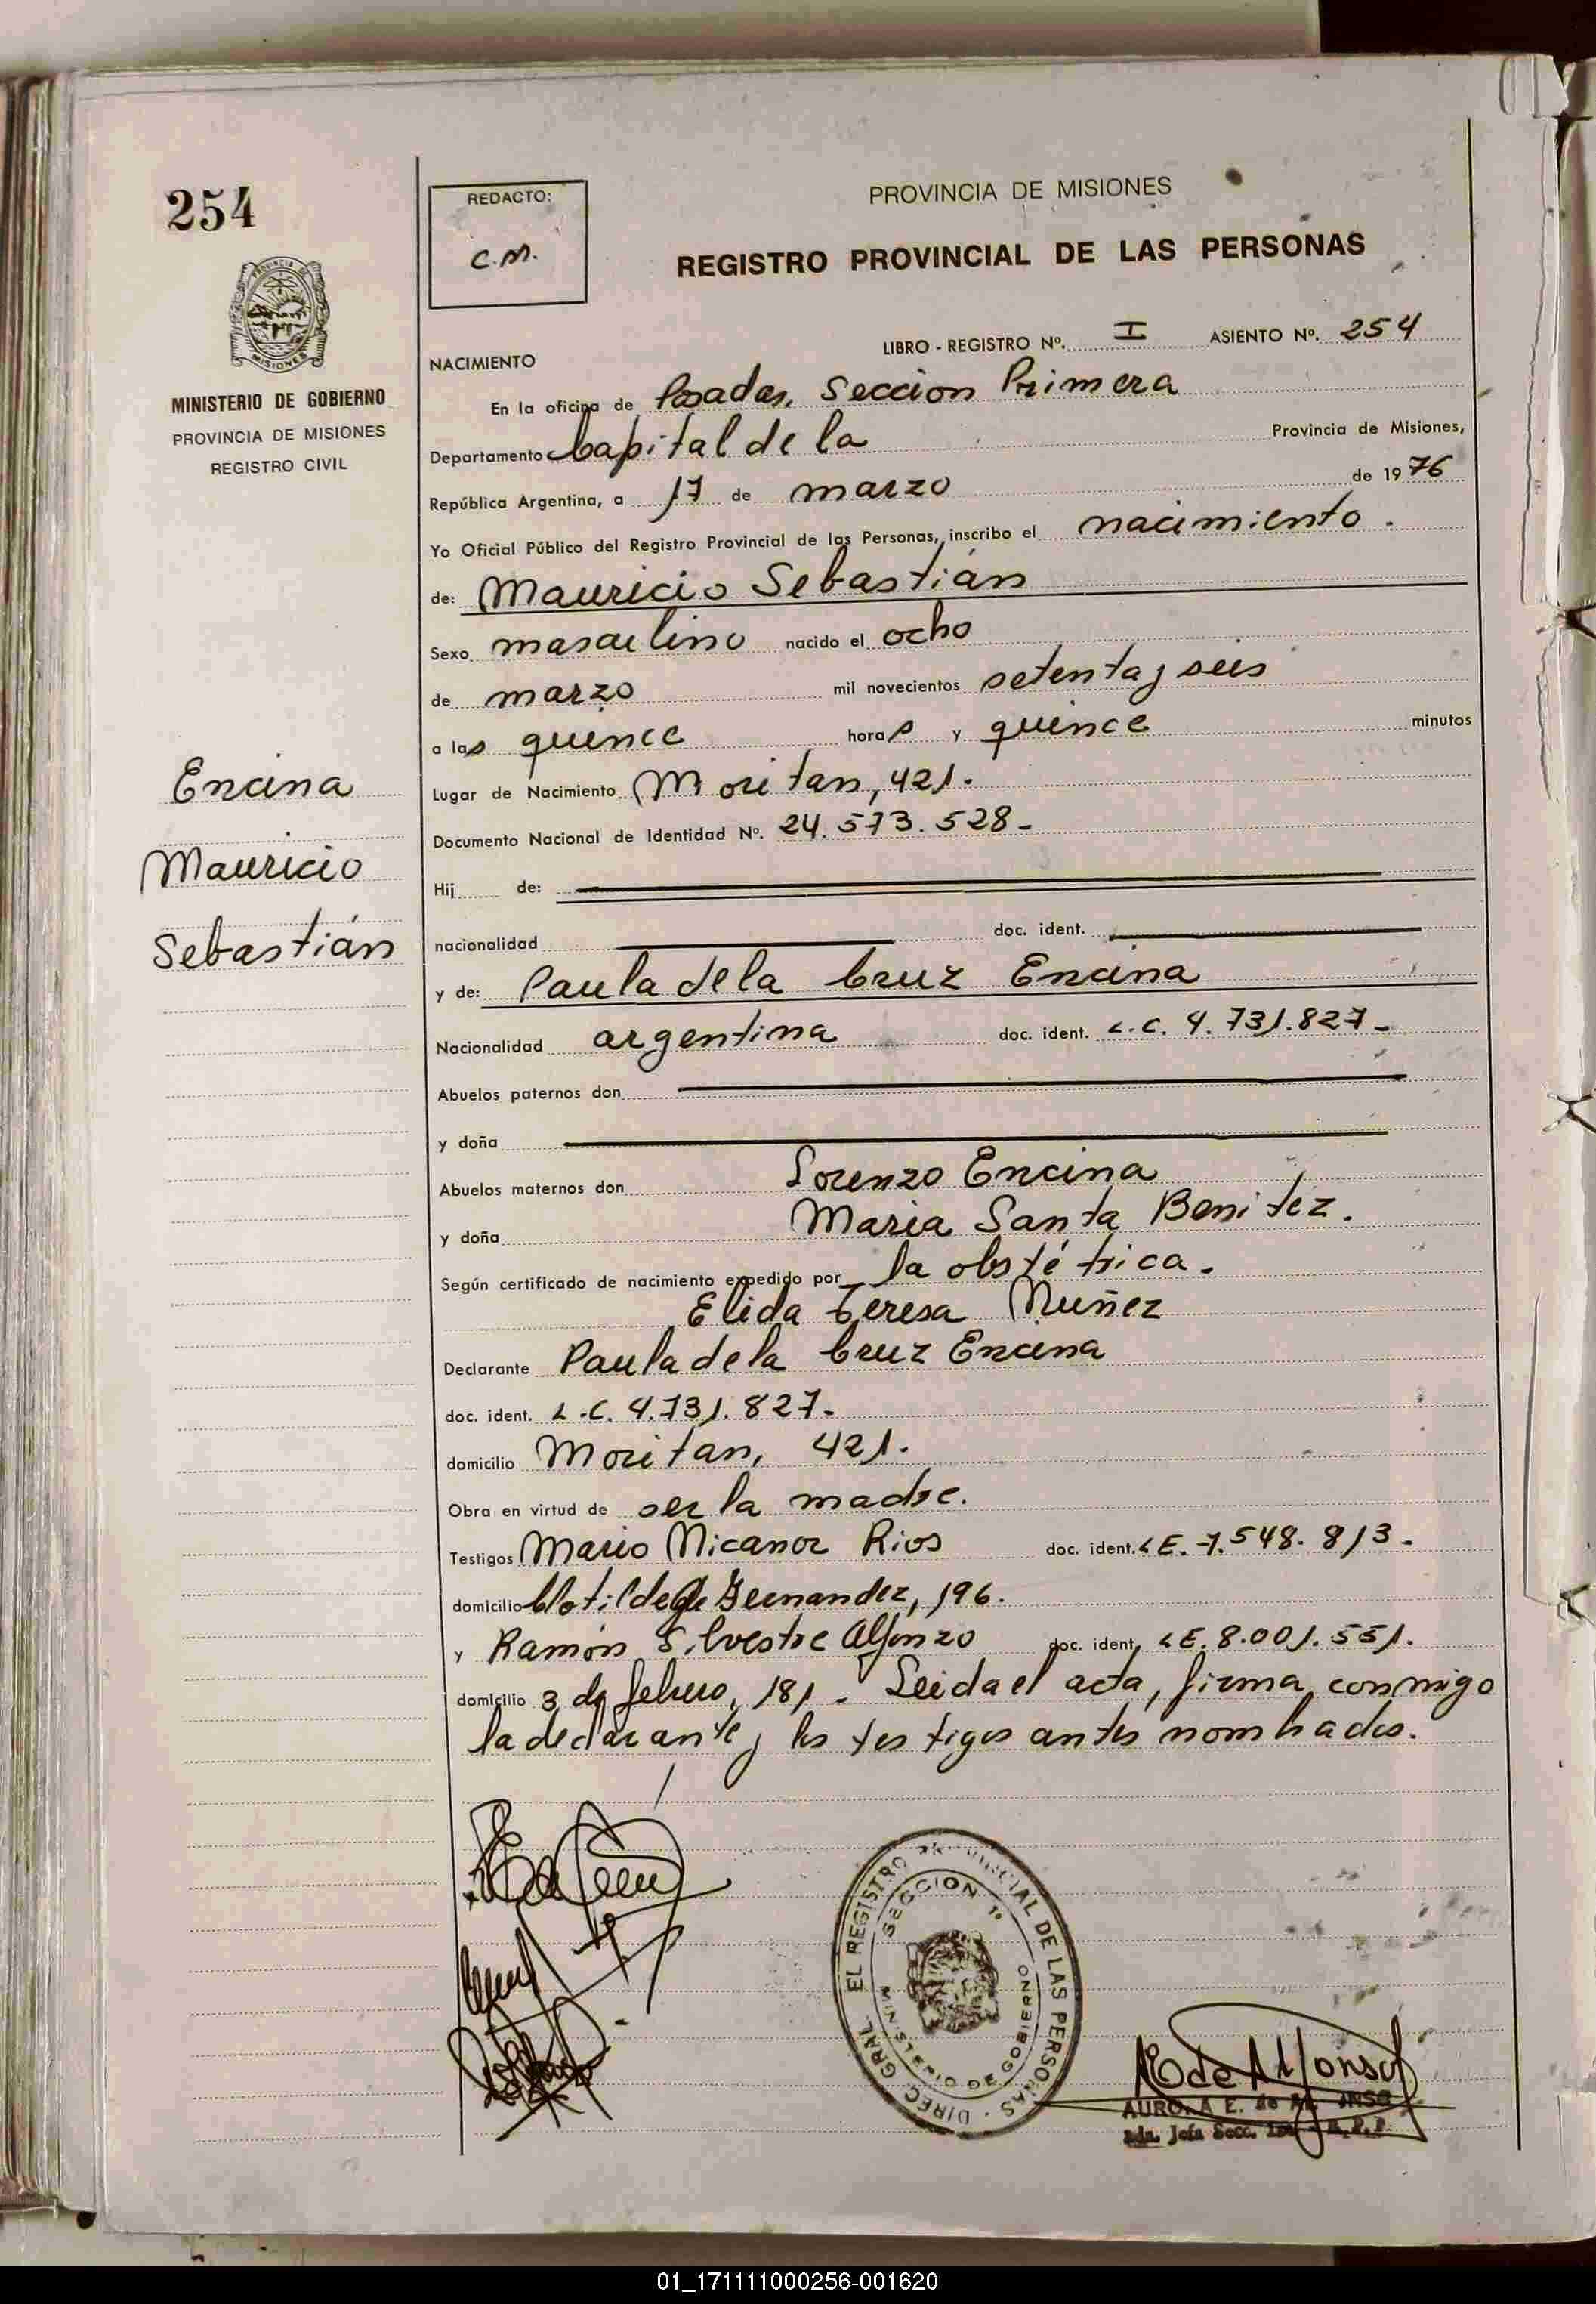 254
REDACTO:
C.M.
PROVINCIA DE MISIONES
REGISTRO PROVINCIAL DE LAS PERSONAS
MINISTERIO DE GOBIERNO
PROVINCIA DE MISIONES
REGISTRO CIVIL
LIBRO - REGISTRO Nº. I ASIENTO Nº. 254
NACIMIENTO
En la oficina de Posadas, Seccion Primera
Departamento Capital de la Provincia de Misiones,
República Argentina, a 17 de marzo de 1976
Yo Oficial Público del Registro Provincial de las Personas, inscribo el nacimiento.
de: Mauricio Sebastián
Sexo masculino nacido el ocho
de marzo mil novecientos setenta y seis
a las quince horas y quince minutos
Encina
Mauricio
Sebastián
Lugar de Nacimiento Moritan, 421.
Documento Nacional de Identidad Nº. 24.573.528-
Hij de:
nacionalidad doc. ident.
y de: Paula de la Cruz Encina
Nacionalidad argentina doc. ident. L.C. 4.731.827-
Abuelos paternos don
y doña
Abuelos maternos don Lorenzo Encina
y doña Maria Santa Benitez.
Según certificado de nacimiento expedido por la obstétrica.
Elida Teresa Nuñez
Declarante Paula de la Cruz Encina
doc. ident. L.C. 4.731.827-
domicilio Moritan, 421.
Obra en virtud de ser la madre.
Testigos Mario Nicanor Rios doc. ident. LE. 7.548.813-
domicilio Clotilde G de Fernandez, 196.
y Ramón Silvestre Alfonzo doc. ident. LE. 8.001.551.
domicilio 3 de febrero, 181. Leida el acta, firma conmigo
la declarante y los testigos antes nombrados.
DIREC. GRAL. EL REGISTRO PROVINCIAL DE LAS PERSONAS
SECCION 1ª
MINISTERIO DE GOBIERNO
E de Alfonso
01_171111000256-001620